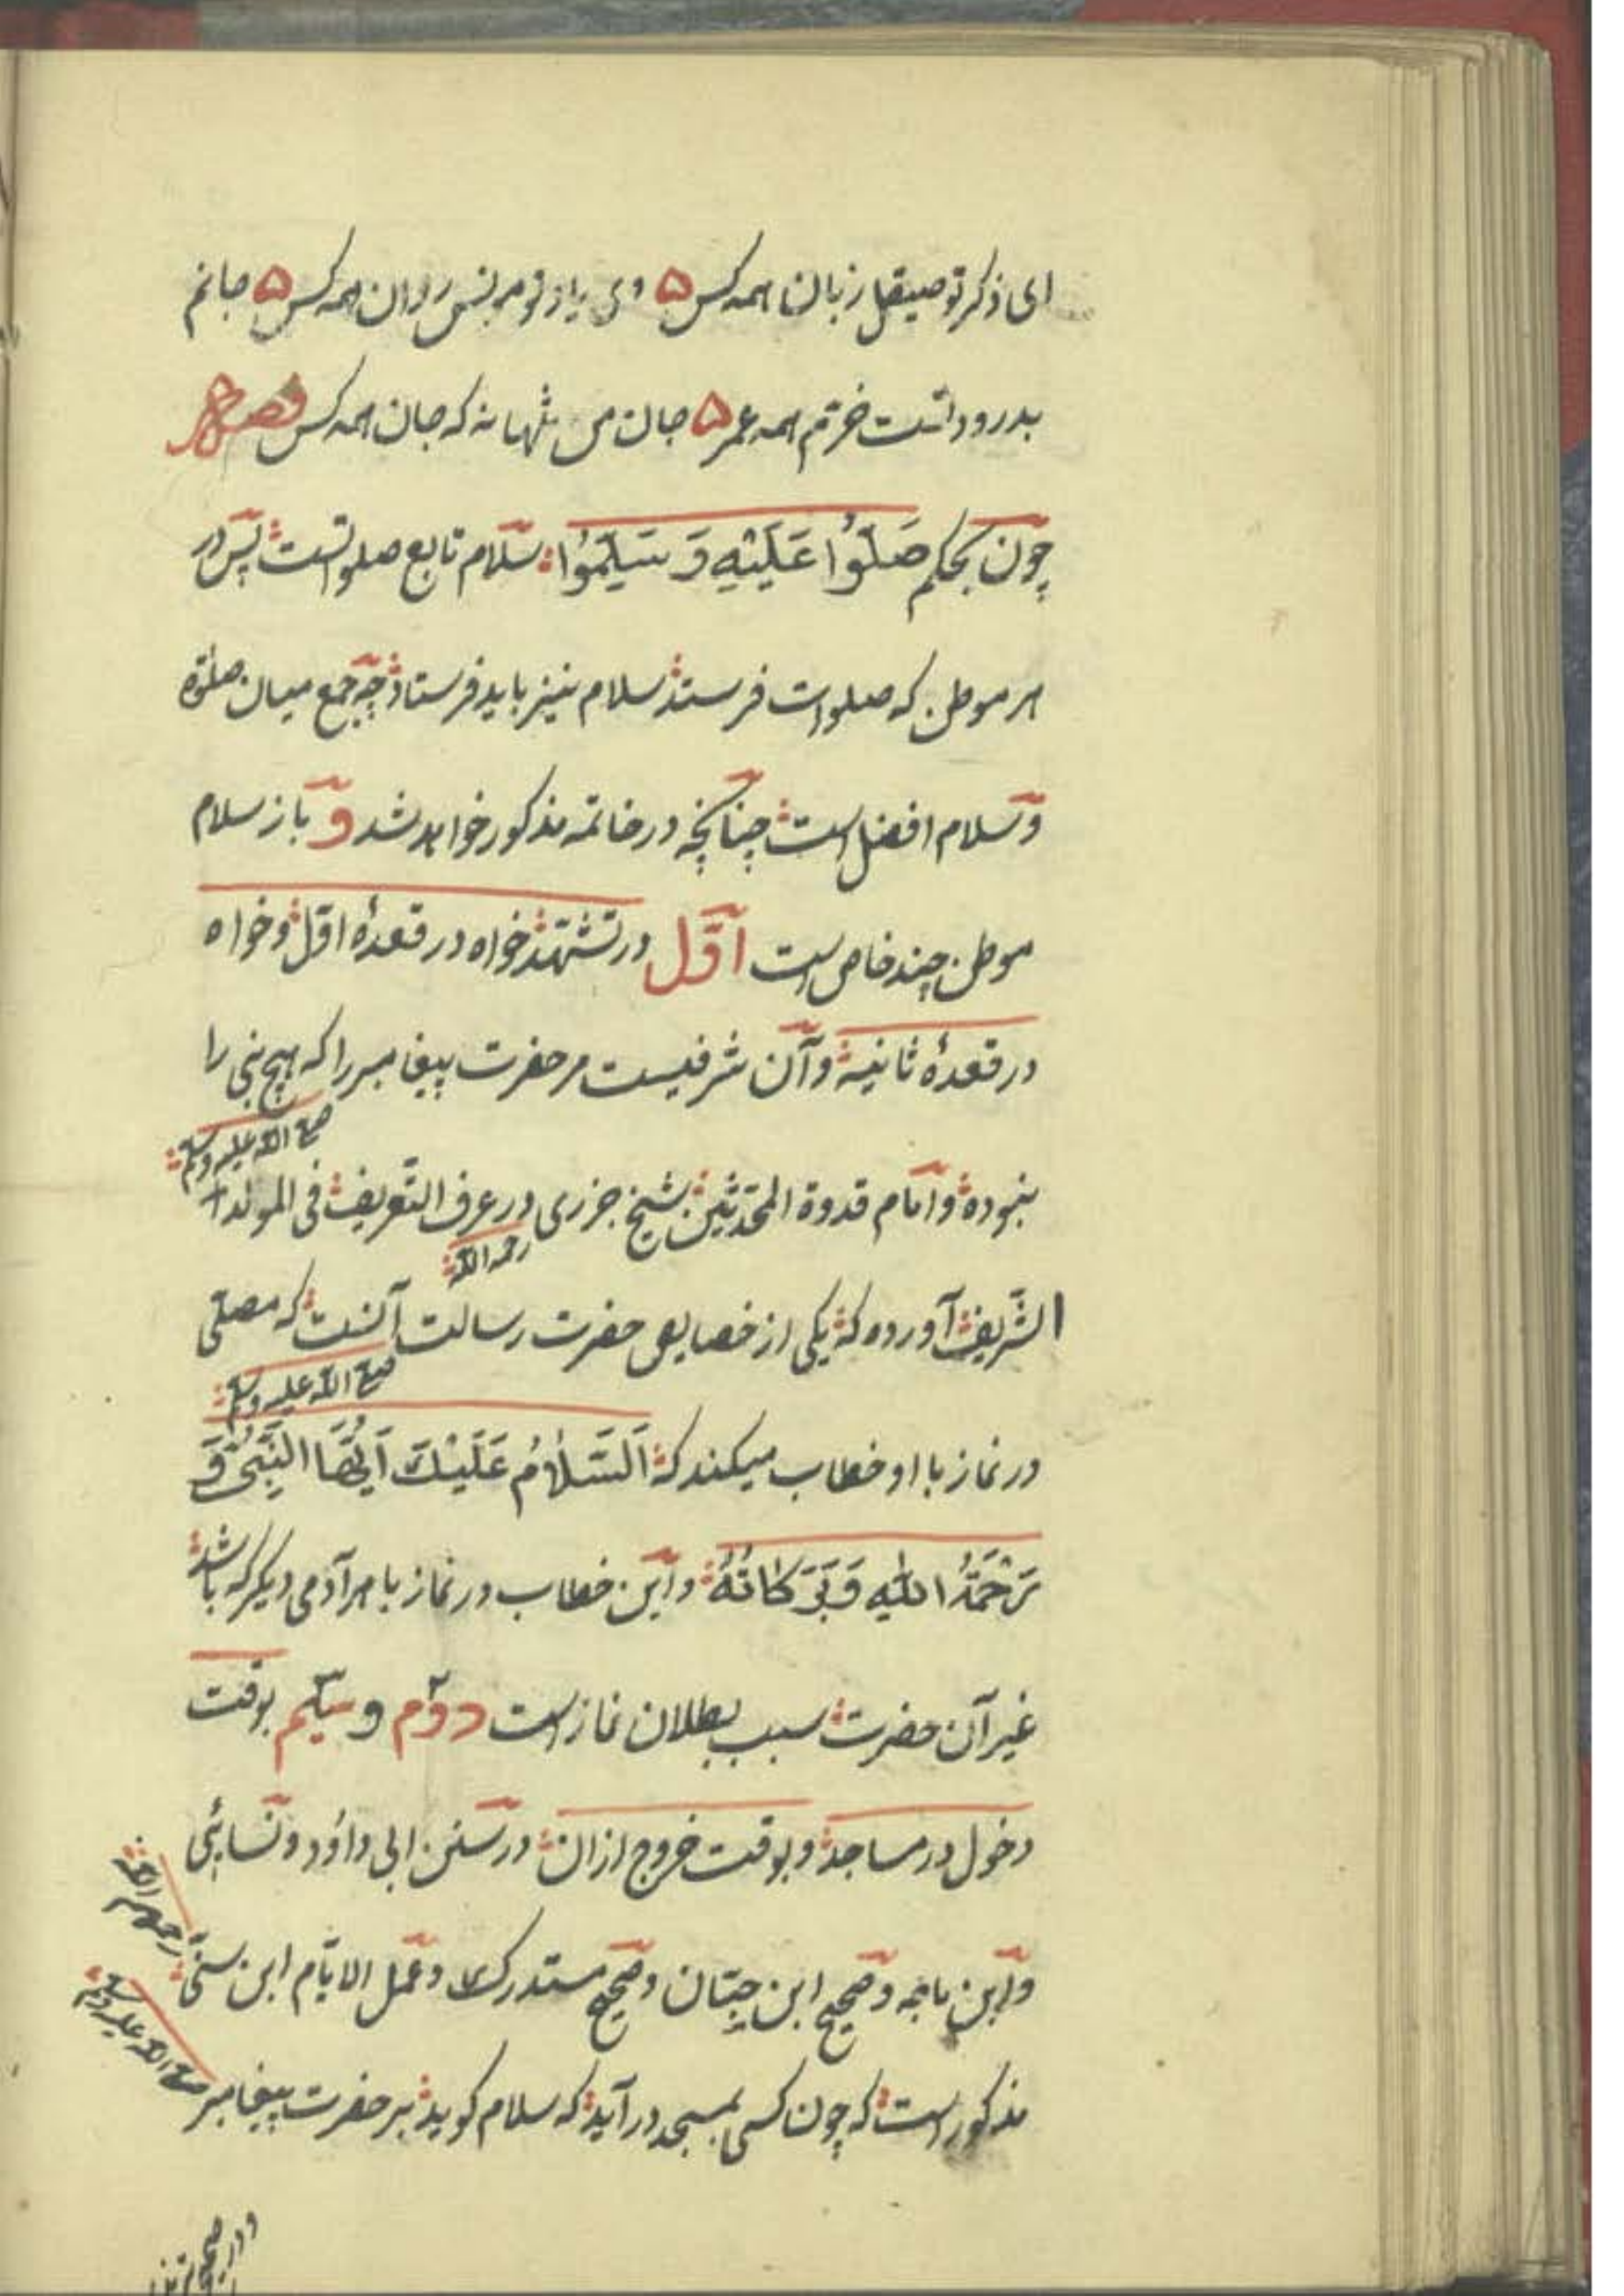 ای ذکر تو صیقل زبان همه کس ۵ وی یاد تو مونس روان همه کس ۵ جانم
بدرود تست خرّم همه عمر ۵ جان من تنها نه که جان همه کس فصل
چون بحکم صَلُّوا عَلَيْهِ وَ سَلِّمُوا سلام تابع صلواتست پس در
هر موطن که صلوات فرستند سلام نیز باید فرستاد چه جمع میان صلوة
و سلام افضل است چنانچه در خاتمه مذکور خواهد شد و باز سلام
موطن چند خاص است اوّل در تشهّد خواه در قعدهٔ اوّل و خواه
در قعدهٔ ثانیه و آن شرفیست مر حضرت پیغامبر را که هیچ نبی را
صلی الله علیه وسلم
نبوده و امام قدوة المحدّثین شیخ جزری در عرف التّعریف فی المولد
رحمه الله
الشّریف آورده که یکی از خصایص حضرت رسالت آنست که مصلّی
صلی الله علیه وسلم
در نماز با او خطاب میکند که اَلسَّلامُ عَلَيْكَ اَيُّهَا النَّبِيُّ وَ
رَحْمَةُ اللهِ وَبَرَكَاتُهُ و این خطاب در نماز با هر آدمی دیگر که باشد
غیر آن حضرت سبب بطلان نماز است دوّم و سیّم بوقت
دخول در مساجد و بوقت خروج از ان در سنن ابی داوُد و نسائی
و ابن ماجه و صحیح ابن حبّان و صحیح مستدرک و عمل الایّام ابن سنّی
رحمهم الله
مذکور است که چون کسی بمسجد در آید که سلام کوید بر حضرت پیغامبر
صلی الله علیه وسلم
و در صحیح